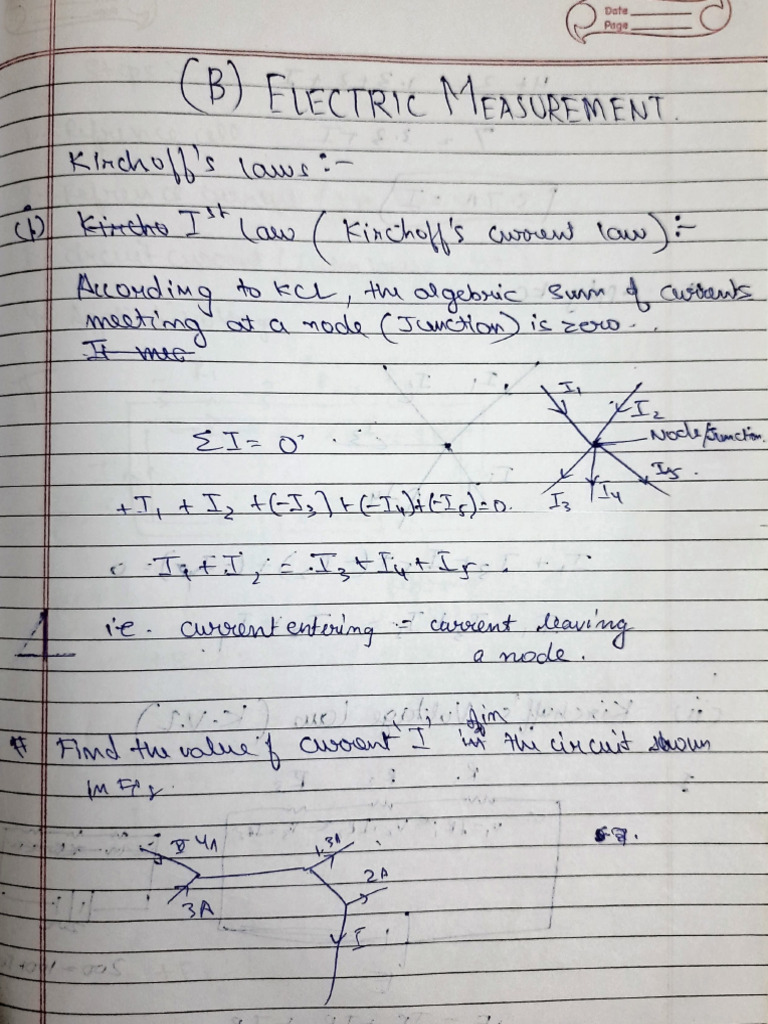 Date
Page
(B) ELECTRIC MEASUREMENT.
Kirchoff's laws :-
(i) Kircho Ist law ( Kirchoff's current law) :-
According to KCL, the algebric sum of currents
meeting at a node (Junction) is zero..
It mee
I1
I2
ΣI = 0
Node/Junction.
I5.
+I1 + I2 +(-I3) + (-I4)+(-I5)=0.
I3
I4
I1 + I2 = I3 + I4 + I5.
i.e. current entering = current leaving
a node.
# Find the value of current I in the circuit shown
in Fig.
4A
1.3A
2A
3A
I